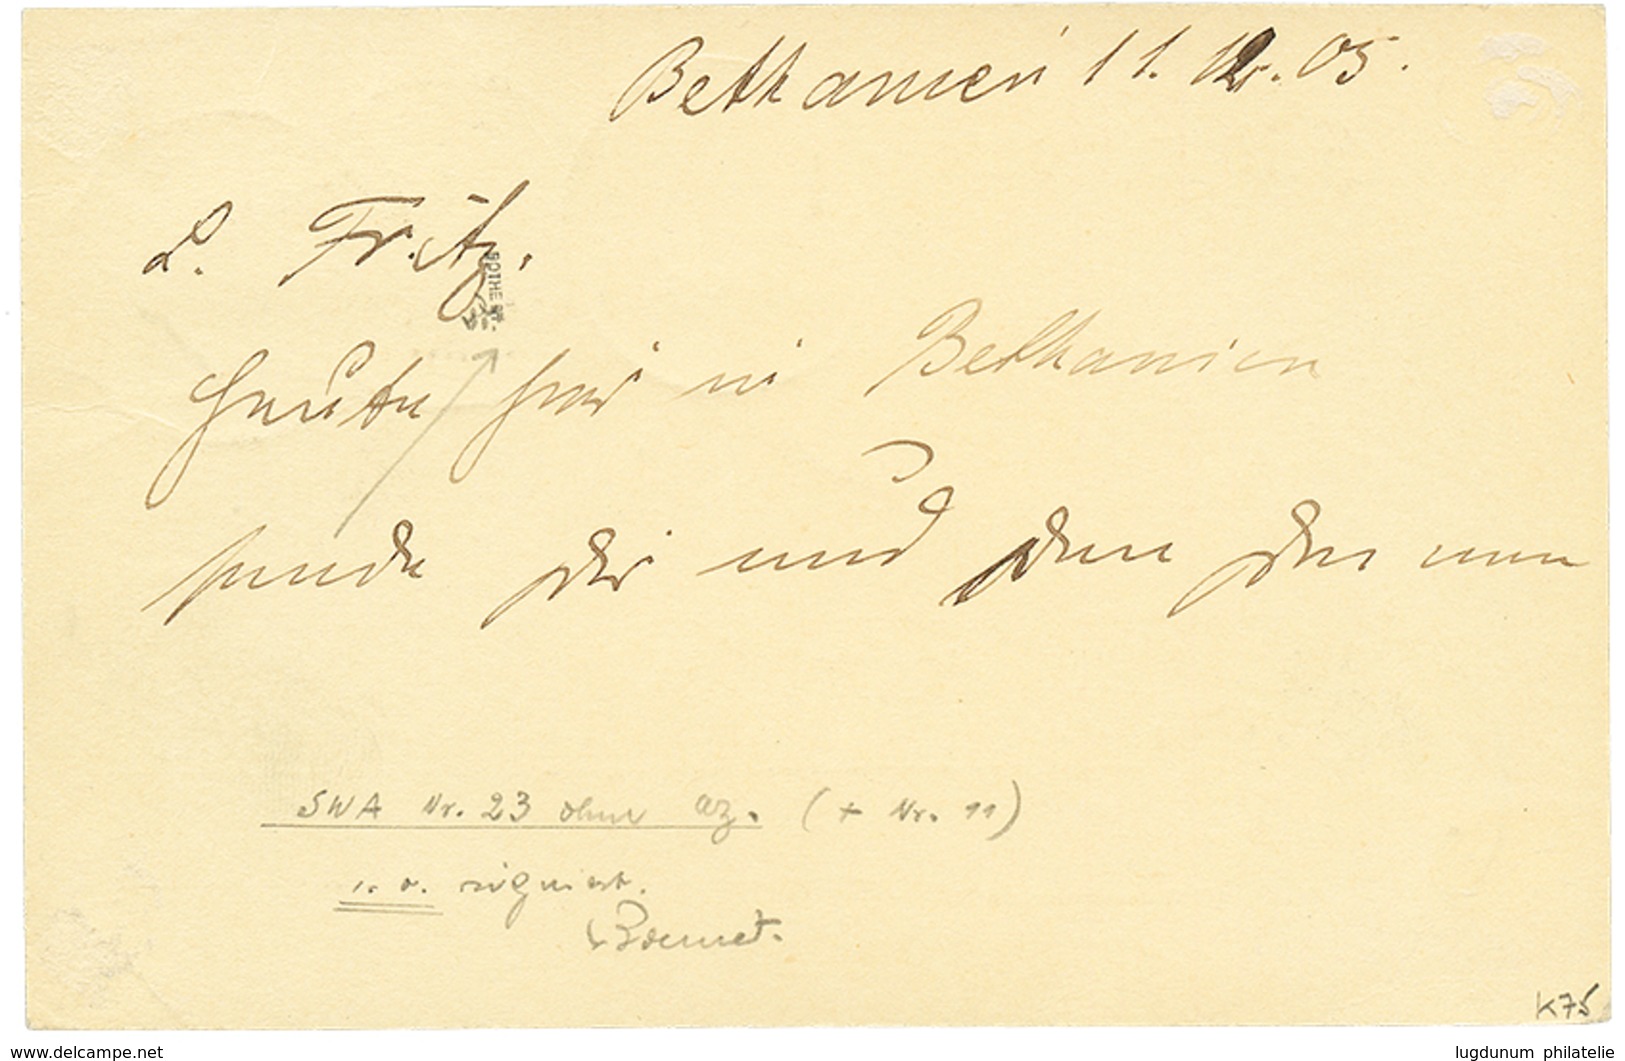 Bethanien 11. 12. 05.
L. Fritz.
BOTHE
Heute hier in Bethanien
sende Dir und
SWA Nr. 23 ohne Wz. (+ Nr. 11)
signiert.
K75
www.delcampe.net
lugdunum philatelie